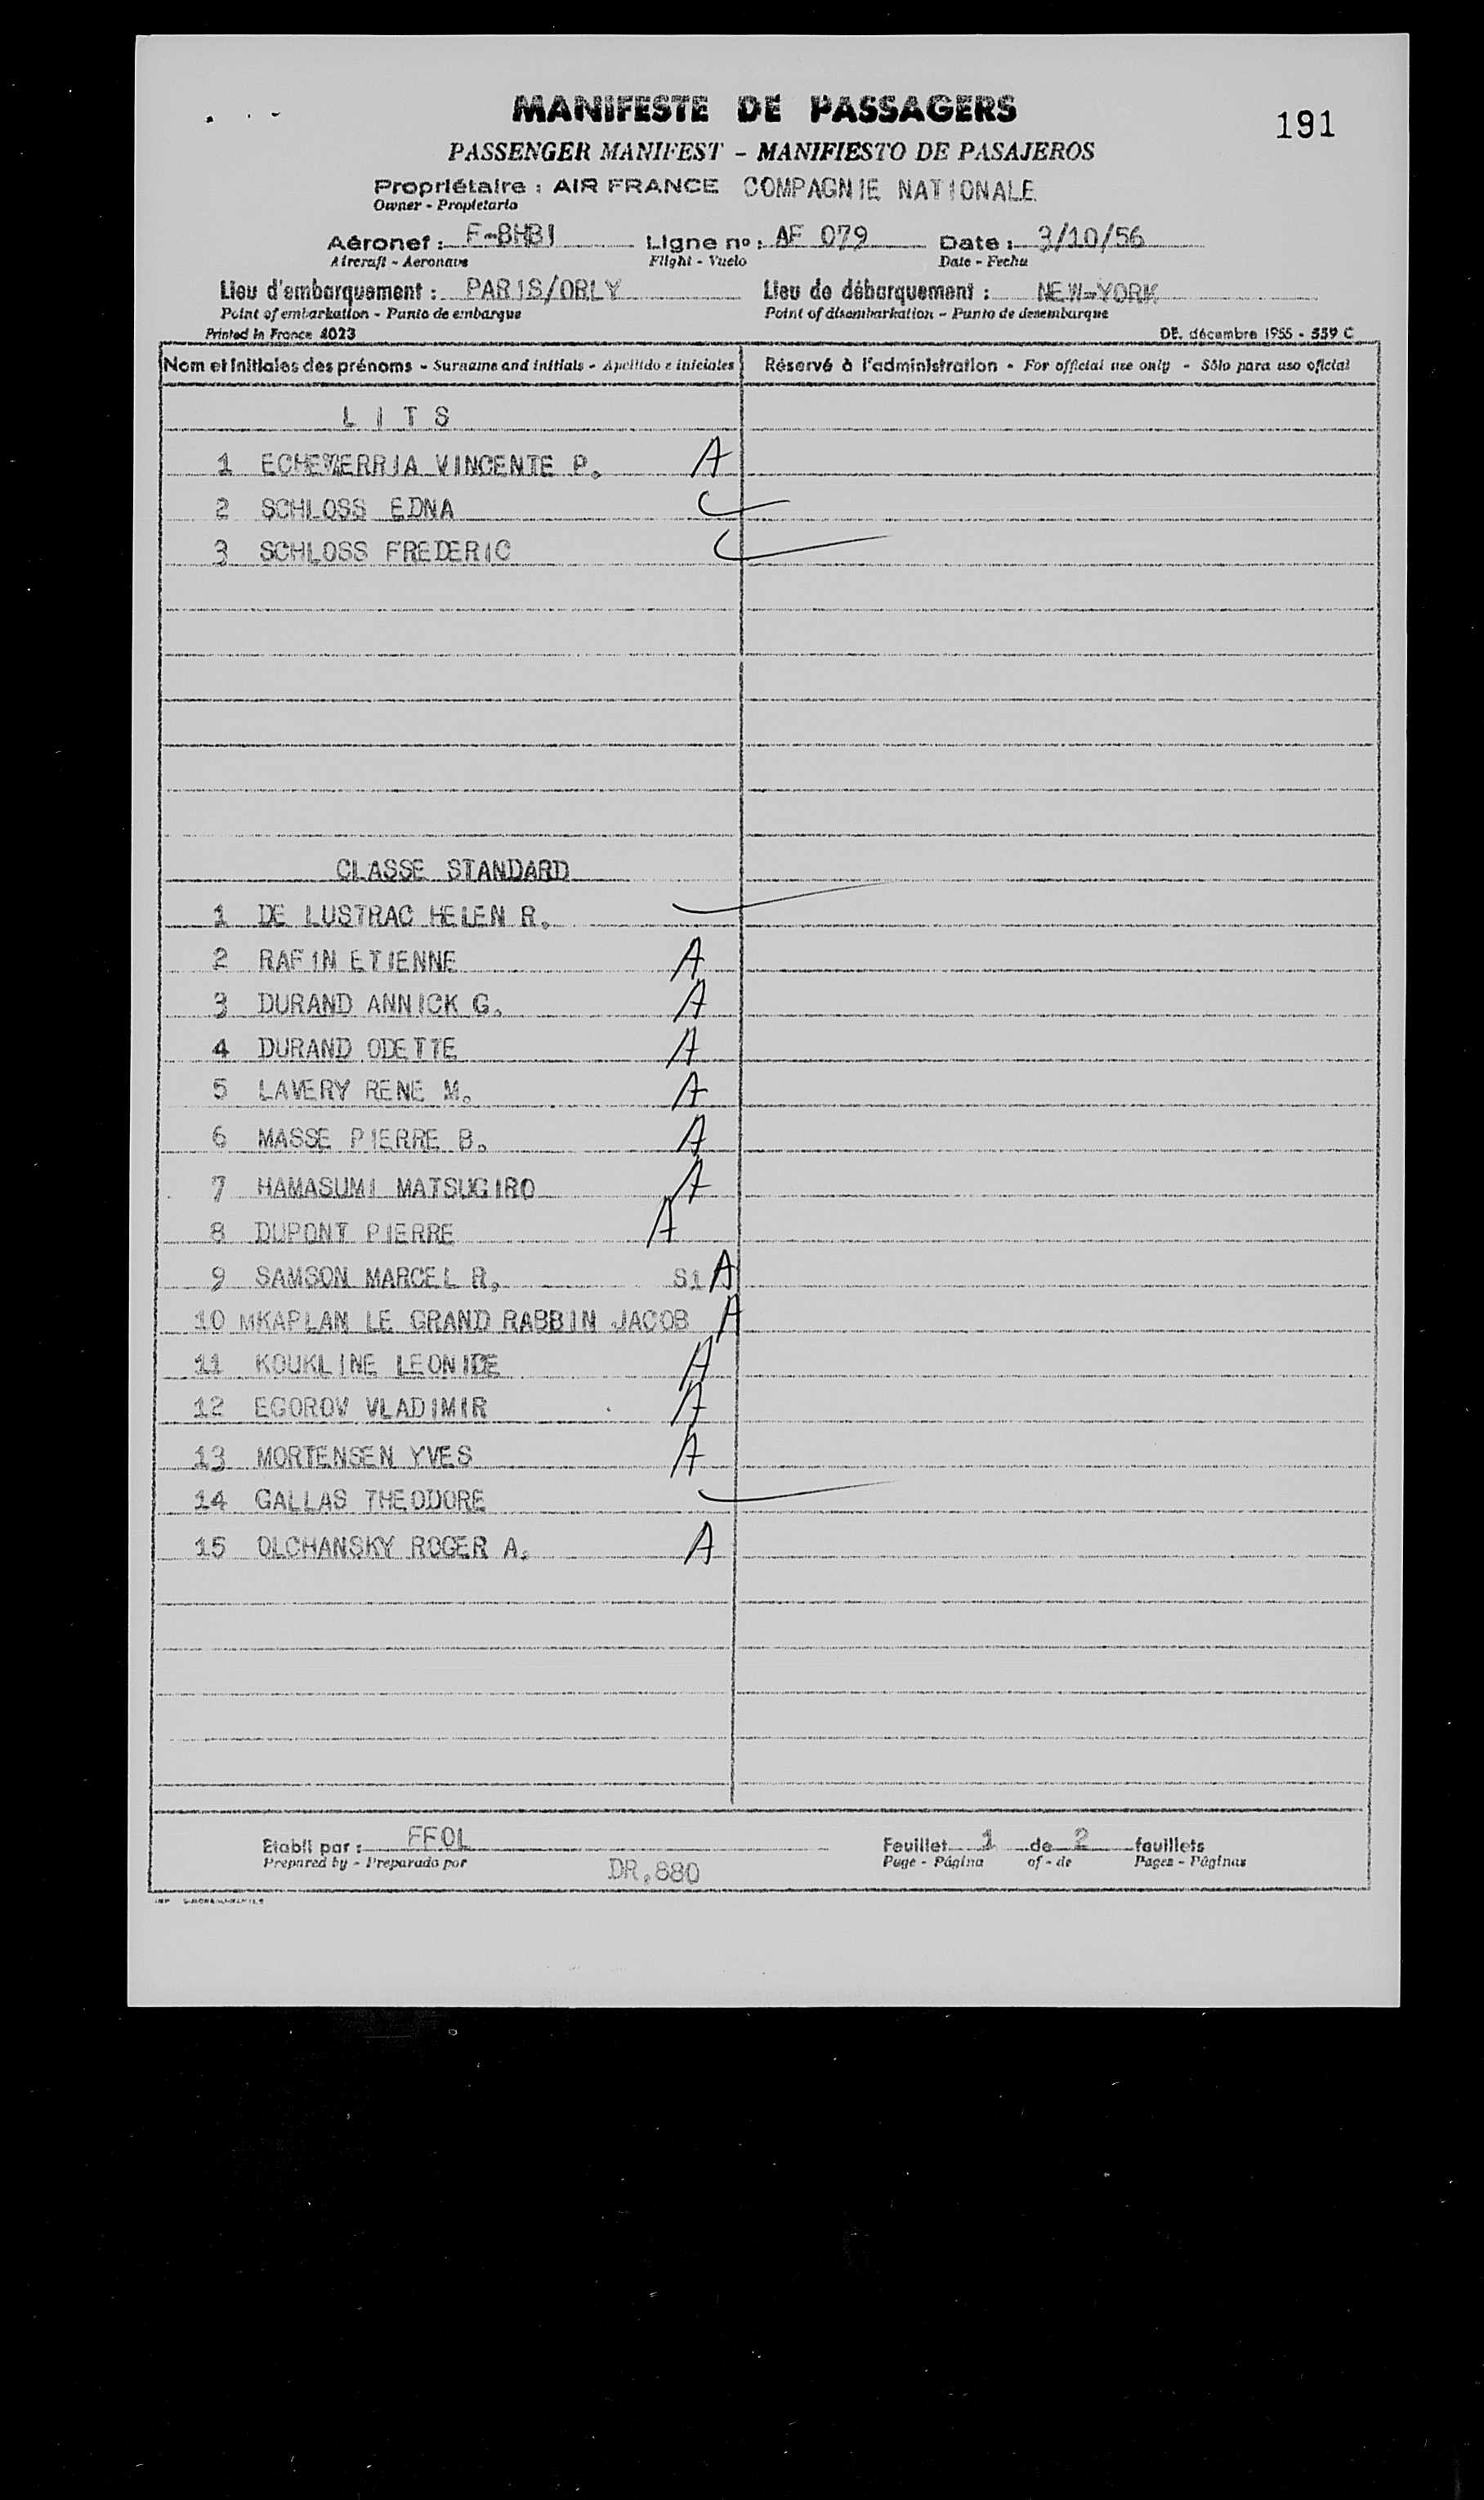 MANIFESTE DE PASSAGERS
191
PASSENGER MANIFEST - MANIFIESTO DE PASAJEROS
Propriétaire : AIR FRANCE COMPAGNIE NATIONALE
Owner - Propietario
Aéronef : F-BHBI Ligne nº : AF 079 Date : 3/10/56
Aircraft - Aeronave Flight - Vuelo Date - Fecha
Lieu d'embarquement : PARIS/ORLY Lieu de débarquement : NEW-YORK
Point of embarkation - Punto de embarque Point of disembarkation - Punto de desembarque
Printed in France 4023 DE. décembre 1955 - 559 C
Nom et initiales des prénoms - Surname and initials - Apellido e iniciales Réservé à l'administration - For official use only - Sólo para uso oficial
L I T S
1 ECHEVERRIA VINCENTE P. A
2 SCHLOSS EDNA
3 SCHLOSS FREDERIC
CLASSE STANDARD
1 DE LUSTRAC HELEN R.
2 RAFIN ETIENNE A
3 DURAND ANNICK G. A
4 DURAND ODETTE A
5 LAVERY RENE M. A
6 MASSE PIERRE B. A
7 HAMASUMI MATSUGIRO A
8 DUPONT PIERRE A
9 SAMSON MARCEL R. S1 A
10 MKAPLAN LE GRAND RABBIN JACOB A
11 KOUKLINE LEONIDE A
12 EGOROV VLADIMIR A
13 MORTENSEN YVES A
14 GALLAS THEODORE
15 OLCHANSKY ROGER A. A
Etabli par : FFOL Feuillet 1 de 2 feuillets
Prepared by - Preparado por Page - Página of - de Pages - Páginas
DR.880